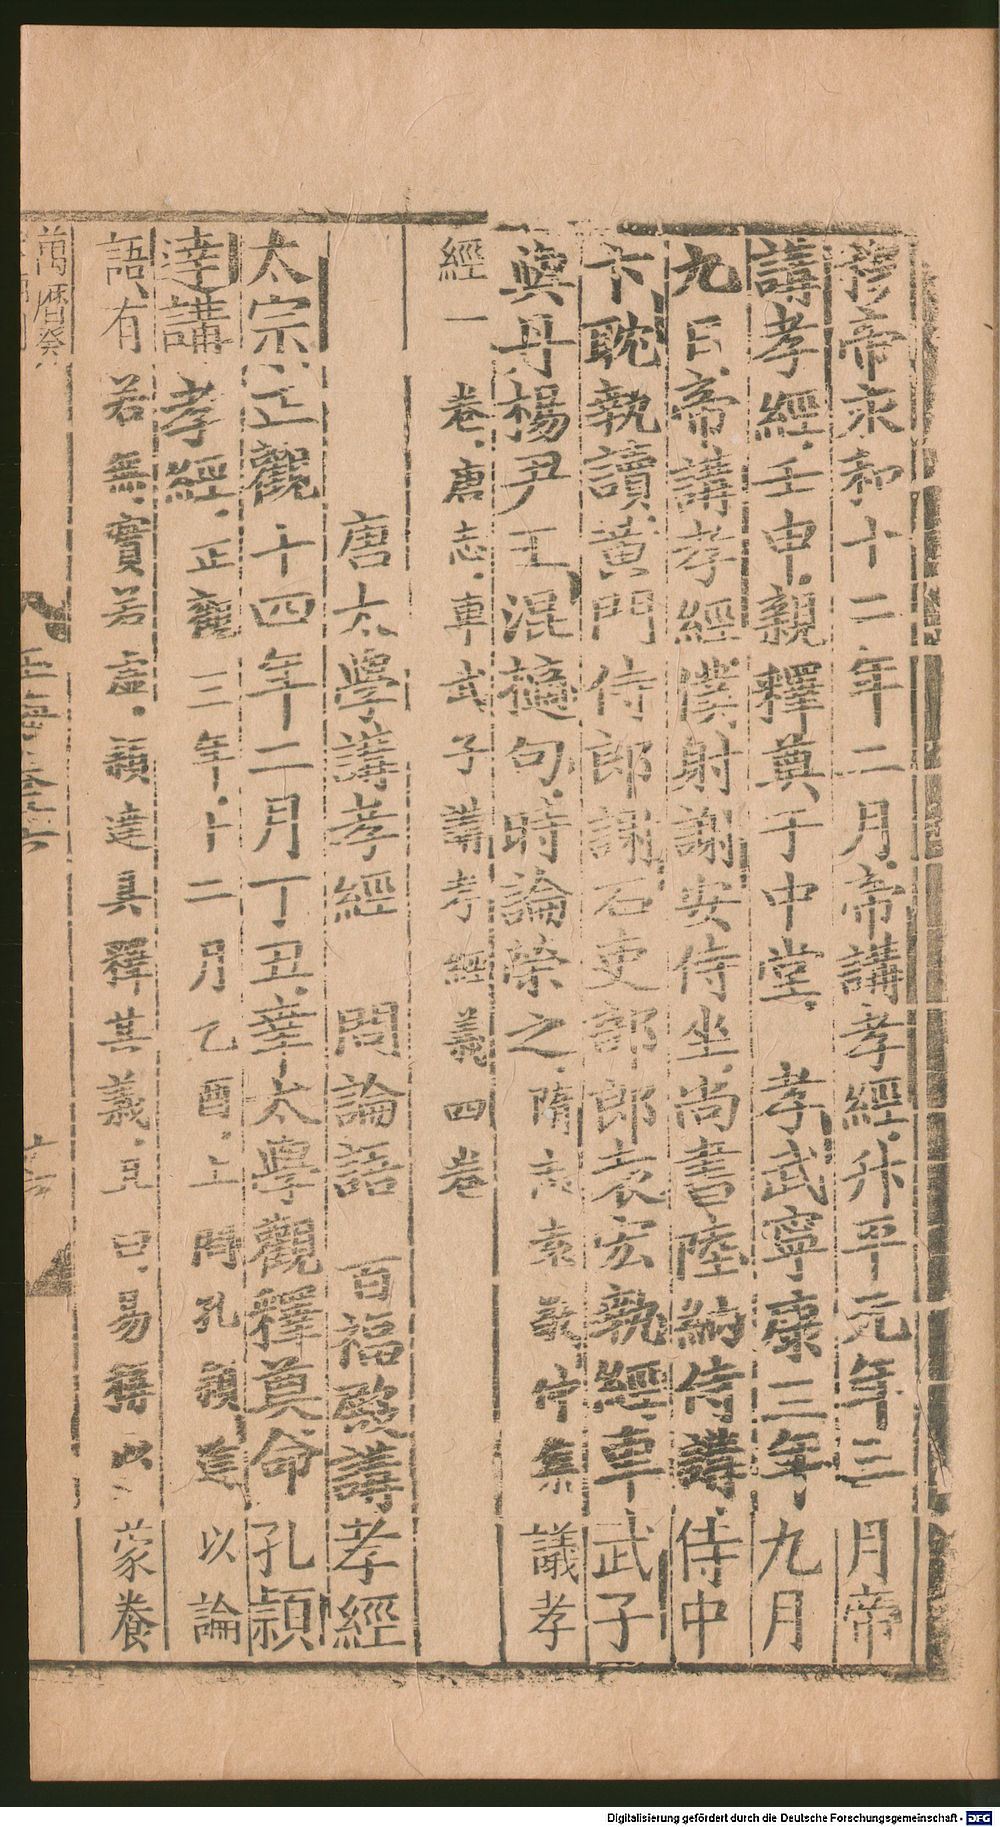 穆帝永和十二年二月帝講孝經升平元年三月帝
講孝經壬申親釋奠于中堂 孝武寧康三年九月
九日帝講孝經僕射謝安侍坐尚書陸納侍講侍中
卞耽執讀黃門侍郎謝石吏部郎袁宏執經車武子
與丹楊尹王混擿句時論榮之隋志袁敬仲集議孝
經一卷唐志車武子講孝經義四卷
唐太學講孝經 問論語 百福殿講孝經
太宗正觀十四年二月丁丑幸太學觀釋奠命孔頴
達講孝經正觀三年十二月乙酉上問孔頴達以論
語有若無實若虛頴達具釋其義且曰易稱以蒙養
萬曆癸
Digitalisierung gefördert durch die Deutsche Forschungsgemeinschaft - DFG